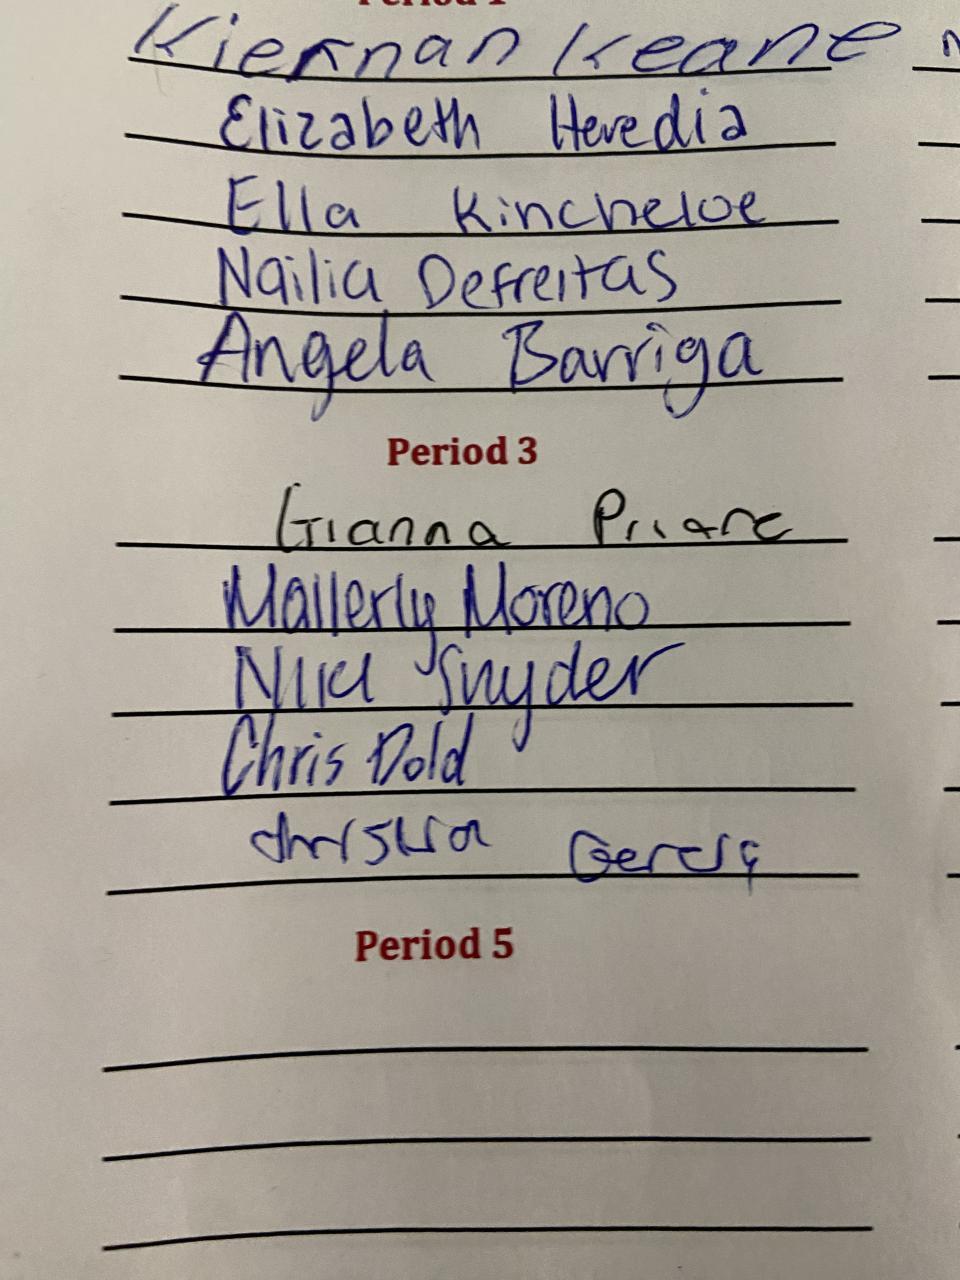 Period 1
Kiernan Keane
Elizabeth Heredia
Ella Kincheloe
Nailia Defreitas
Angela Barriga
Period 3
Gianna
Mallerly Moreno
Snyder
Chris Dold
Period 5